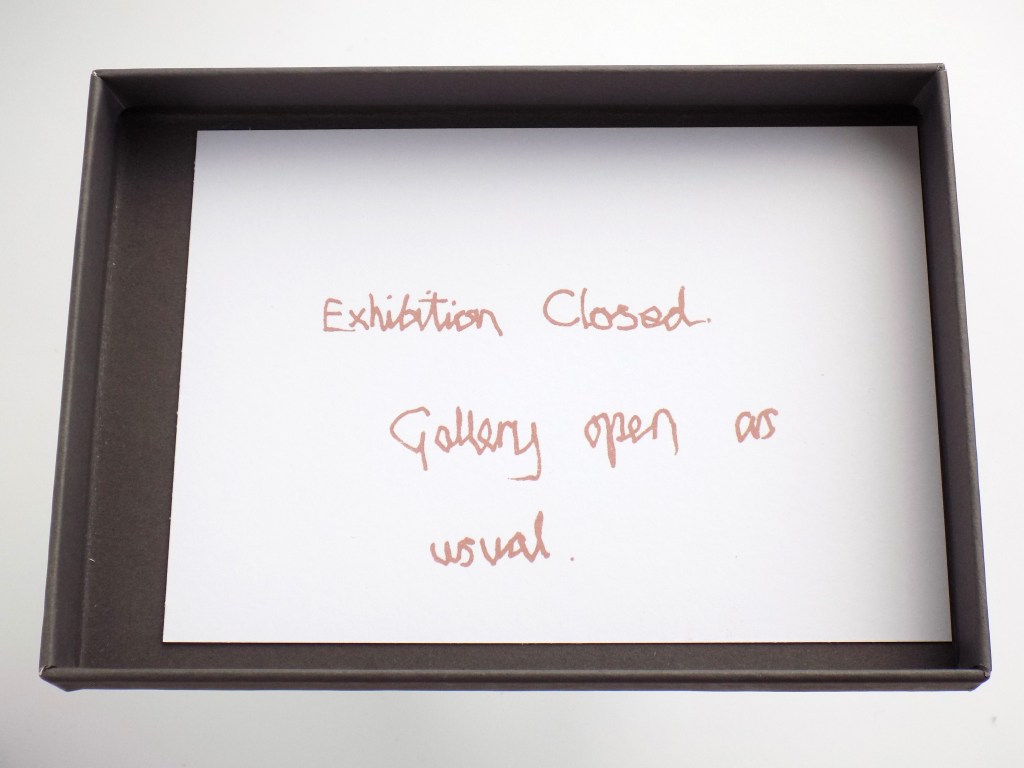 Exhibition Closed.
Gallery open as
usual.